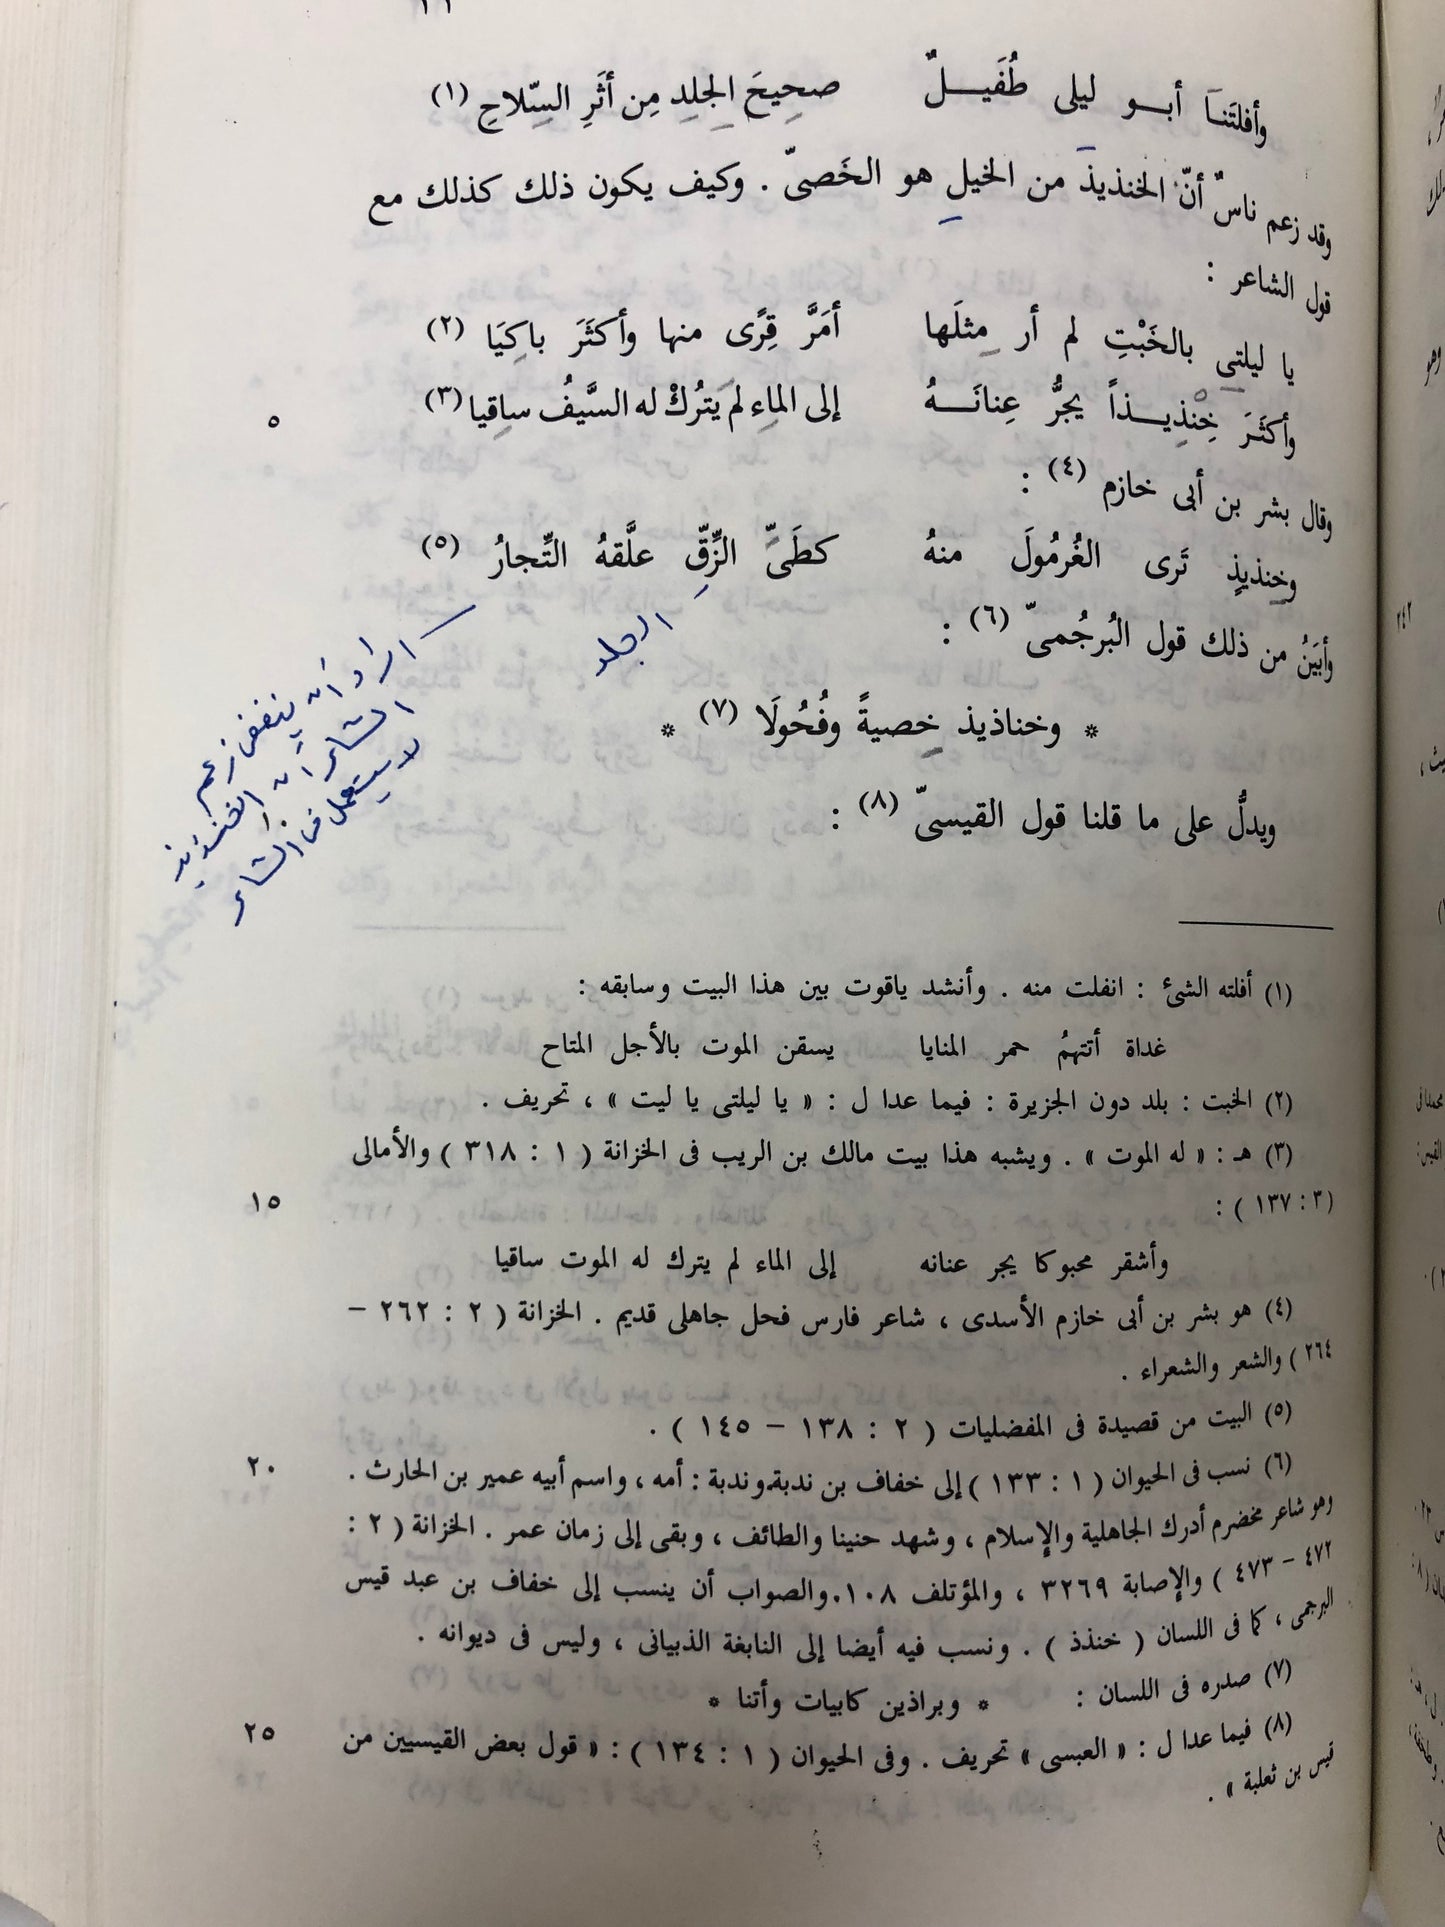 وأفلتَنا أبـو ليلى طُفَيـلٌ صحِيحَ الجِلِدِ مِن أثَرِ السِّلاحِ (١)
وقد زعم ناسٌ أنّ الخنذيذَ من الخيلِ هو الخَصىّ . وكيف يكون ذلك كذلك مع
قول الشاعر :
يا ليلتى بالخَبْتِ لم أر مِثلَها أمَرَّ قِرًى منها وأكثَرَ باكِيَا (٢)
وأكثَرَ خِنْذِيـذاً يجرُّ عِنانَـهُ إلى الماءِ لم يَترُكْ له السَّيفُ ساقِيا (٣)
٥
وقال بشر بن أبى خازم (٤) :
وخِنذيذٍ تَرى الغُرمُولَ منهُ كطَىِّ الزِّقِّ علَّقهُ التِّجارُ (٥)
الجلد
وأبيَنُ من ذلك قول البُرجُمىّ (٦) :
* وخناذيذ خِصيةً وفُحُولَا (٧) *
ويدلُّ على ما قلنا قول القيسىّ (٨) :
اراد أن ينفض زعم
الشاعر أن الخنذيذ
لا يستعمل فى الشاعر
(١) أفلته الشىء : انفلت منه . وأنشد ياقوت بين هذا البيت وسابقه :
غداة أتتهمُ حمر المنايا يسقن الموت بالأجل المتاح
(٢) الخبت : بلد دون الجزيرة : فيما عدا ل : « يا ليلتى يا ليت » ، تحريف .
(٣) هـ : « له الموت » . ويشبه هذا بيت مالك بن الريب فى الخزانة ( ١ : ٣١٨ ) والأمالى
(٣ : ١٣٧ ) :
١٥
وأشقر محبوكا يجر عنانه إلى الماء لم يترك له الموت ساقيا
(٤) هو بشر بن أبى خازم الأسدى ، شاعر فارس فحل جاهلى قديم . الخزانة ( ٢ : ٢٦٢ –
٢٦٤ ) والشعر والشعراء .
(٥) البيت من قصيدة فى المفضليات ( ٢ : ١٣٨ – ١٤٥ ) .
(٦) نسب فى الحيوان ( ١ : ١٣٣ ) إلى خفاف بن ندبة. وندبة : أمه ، واسم أبيه عمير بن الحارث .
٢٠
وهو شاعر مخضرم أدرك الجاهلية والإسلام ، وشهد حنينا والطائف ، وبقى إلى زمان عمر . الخزانة ( ٢ :
٤٧٢ – ٤٧٣ ) والإصابة ٣٢٦٩ ، والمؤتلف ١٠٨. والصواب أن ينسب إلى خفاف بن عبد قيس
البرجمى ، كما فى اللسان ( خنذذ ) . ونسب فيه أيضا إلى النابغة الذبيانى ، وليس فى ديوانه .
(٧) صدره فى اللسان : * وبراذين كابيات وأتنا *
(٨) فيما عدا ل : « العبسى » تحريف . وفى الحيوان ( ١ : ١٣٤ ) : « قول بعض القيسيين من
٢٥
قيس بن ثعلبة » .